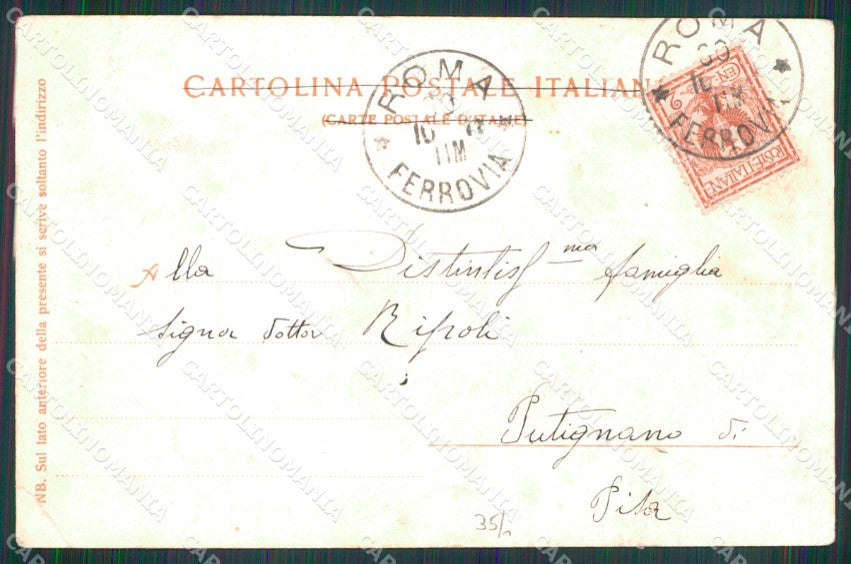 CARTOLINA POSTALE ITALIANA
(CARTE POSTALE D'ITALIE)
ROMA
10
11M
FERROVIA
ROMA
10
11M
FERROVIA
POSTE ITALIANE
NB. Sul lato anteriore della presente si scrive soltanto l'indirizzo
Alla Distintiss ma famiglia
Signor dottor Ripoli
Putignano di
Pisa
35/-
CARTOLINOMANIA